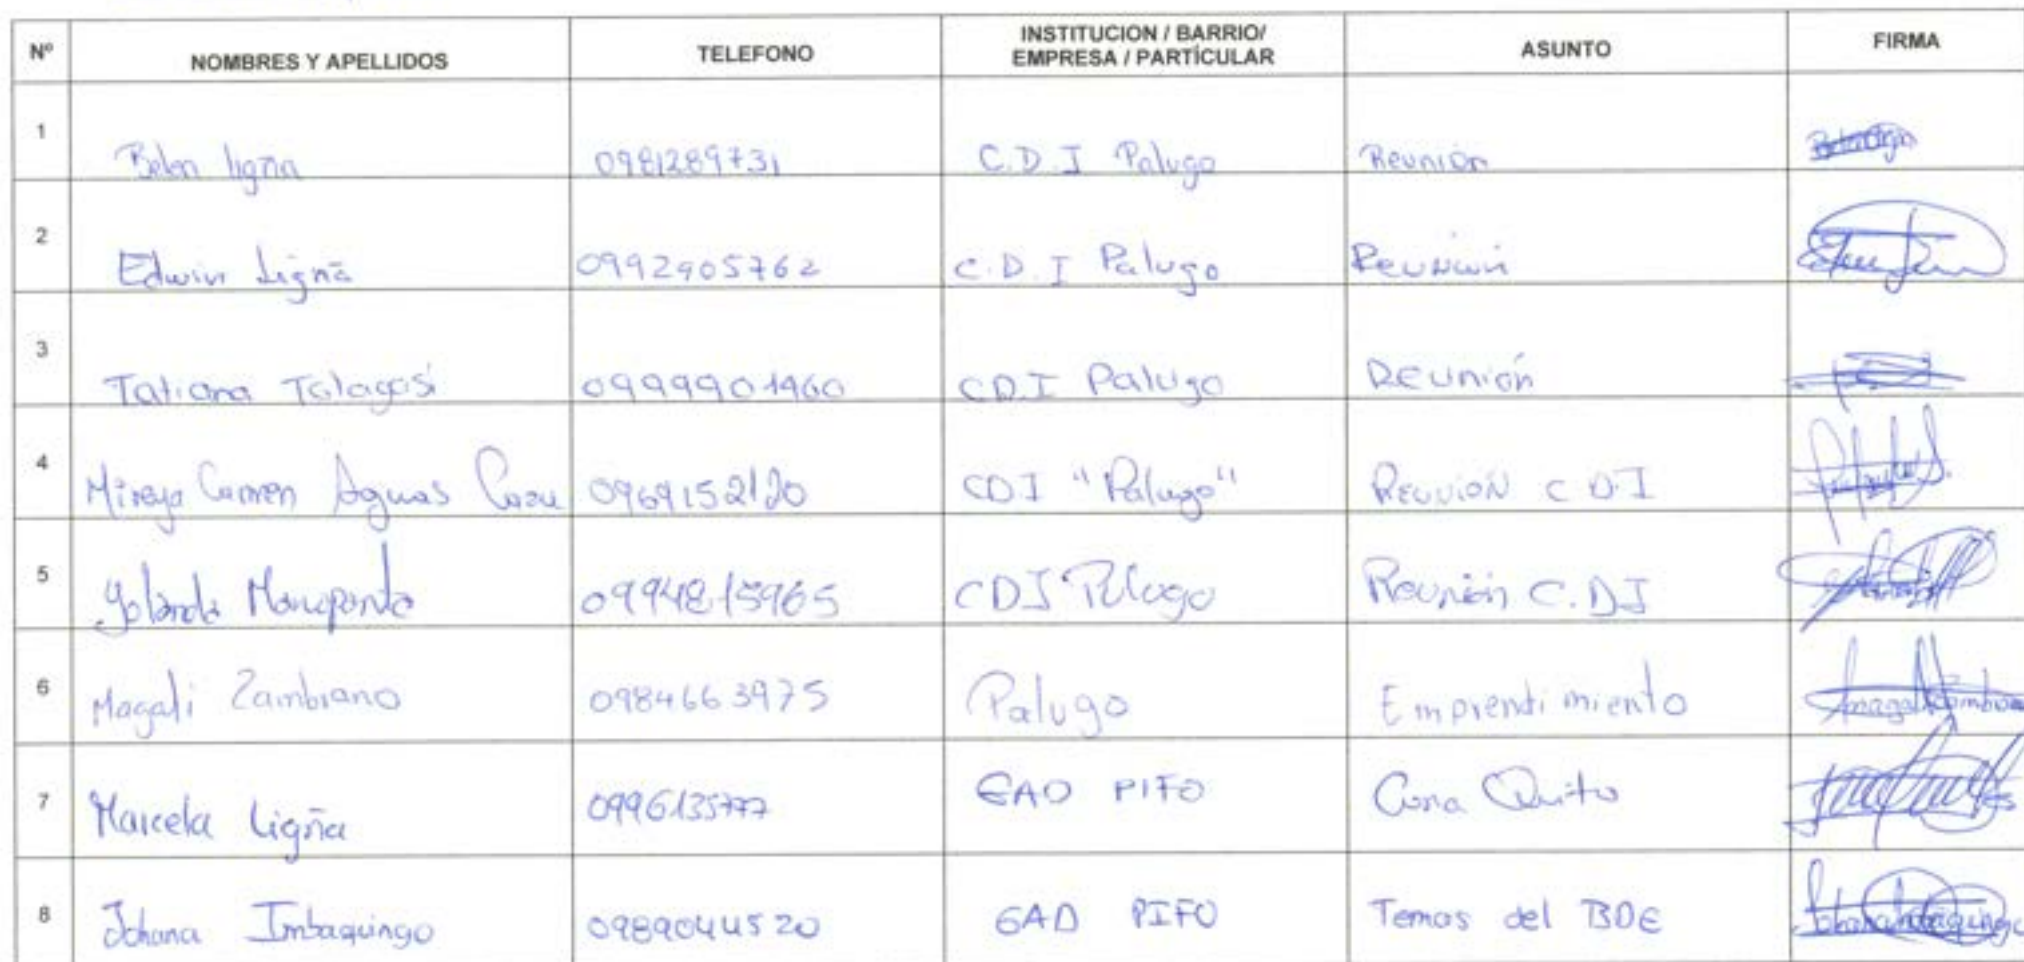 Nº NOMBRES Y APELLIDOS TELEFONO INSTITUCION / BARRIO/ EMPRESA / PARTÍCULAR ASUNTO FIRMA
1 Belen ligña 0981289731 C.D.I Palugo Reunión
2 Edwin Ligña 0992905762 C.D.I Palugo Reunion
3 Tatiana Talagasi 0999901960 C.D.I Palugo Reunión
4 Mireya Carmen Aguas 0969152120 CDI "Palugo" Reunion C D I
5 Yolanda 0994815965 CDI Palugo Reunión C.DI
6 Magali Zambrano 0984663975 Palugo Emprendimiento
7 Marcela Ligña 0996135777 GAD PIFO Quito
8 Johana Imbaquingo 0989044520 GAD PIFO Temas del BDE